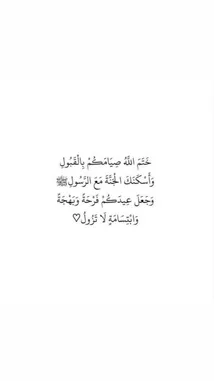 خَتَمَ اللَّهُ صِيَامَكُمْ بِالْقَبُولِ
وَأَسْكَنَكَ الْجَنَّةَ مَعَ الرَّسُولِ ﷺ
وَجَعَلَ عِيدَكُمْ فَرْحَةً وَبَهْجَةً
وَابْتِسَامَةٍ لَا تَزُولُ♡